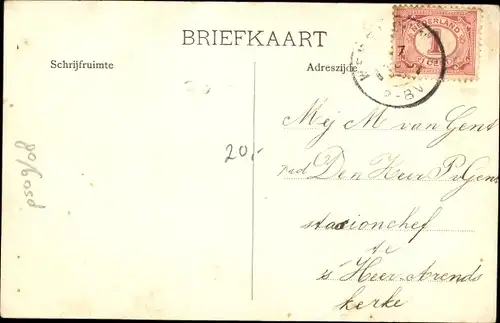 BRIEFKAART
Schrijfruimte
Adreszijde
NEDERLAND
1
CENT
20,-
Mej M van Gent
p/ad Den Heer P v Gent
stationchef
te
's Heer-Arends
kerke